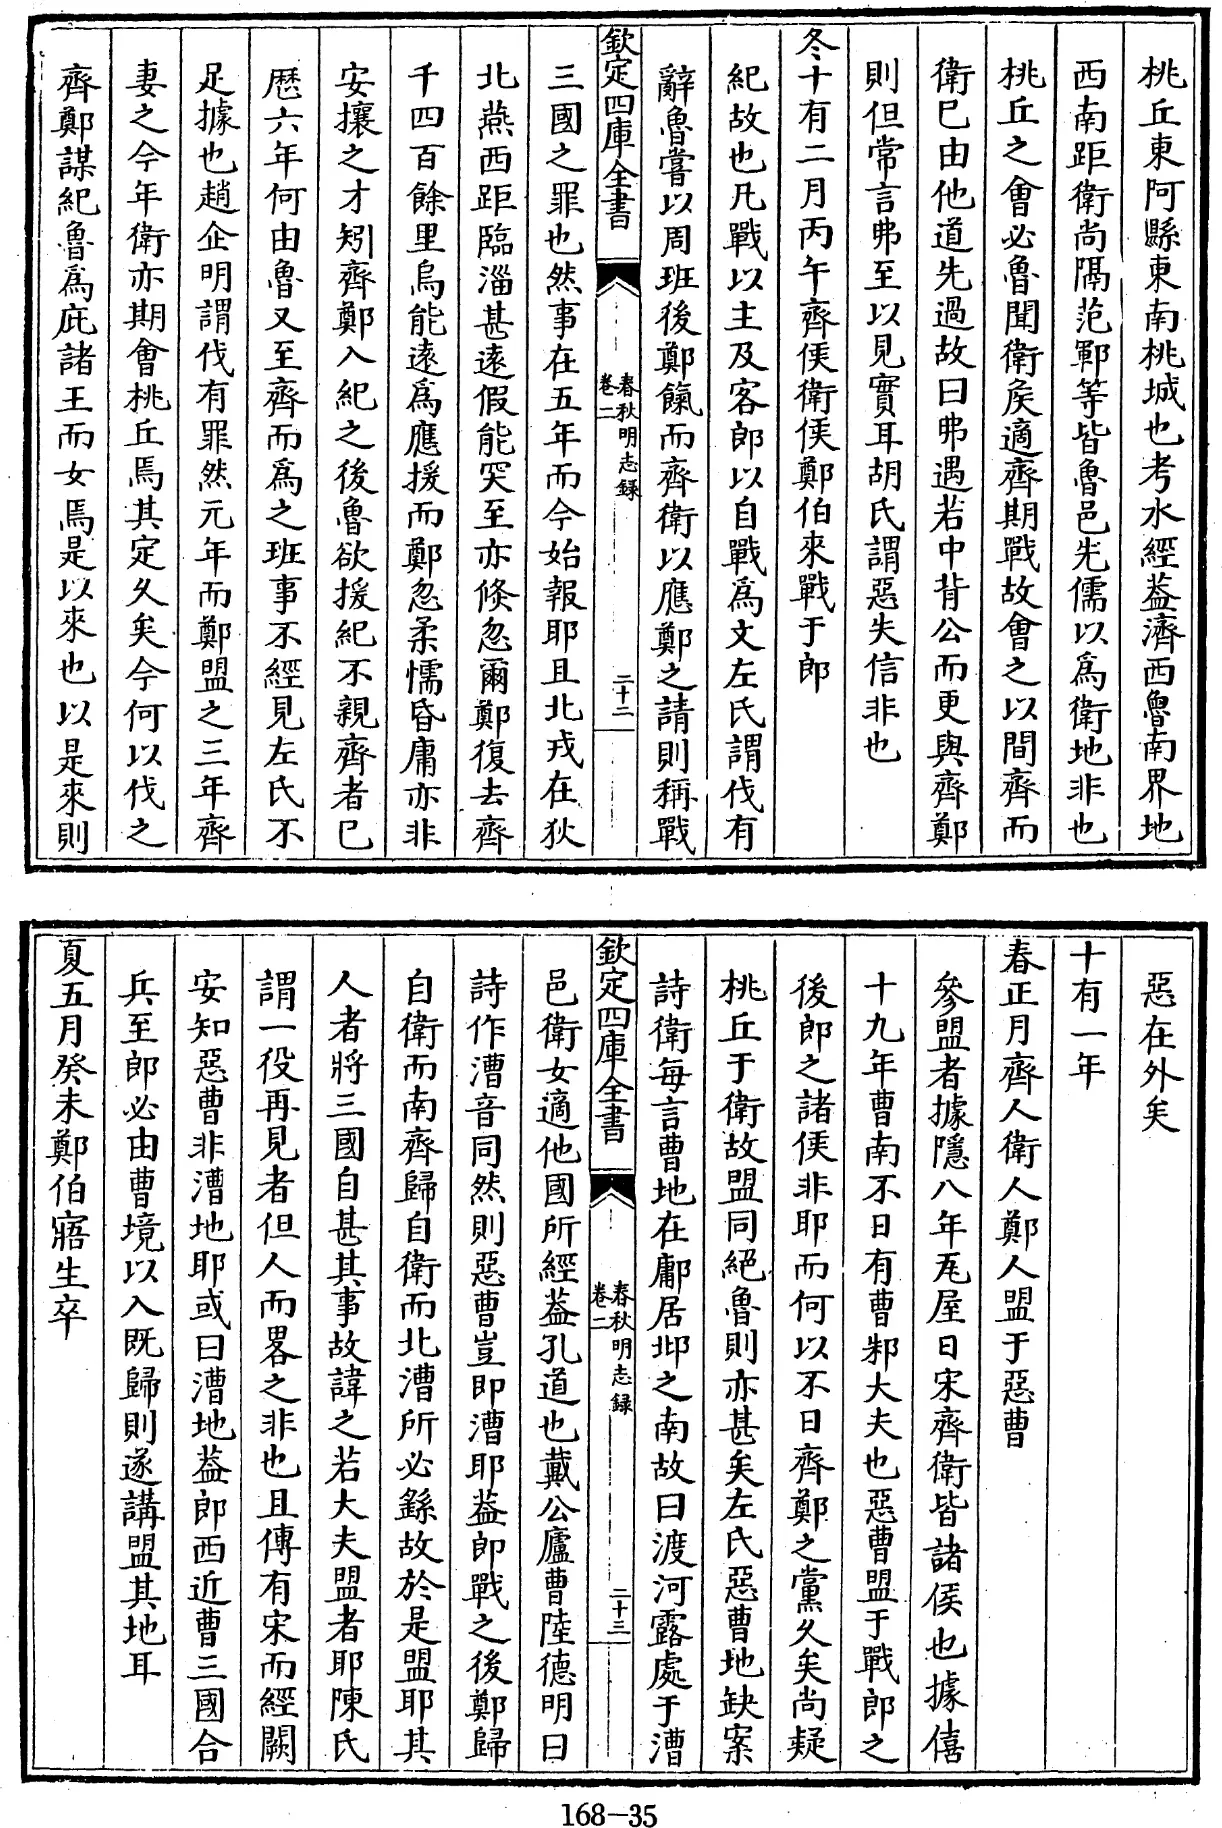 桃丘東阿縣東南桃城也考水經葢濟西魯南界地
西南距衛尚隔范鄆等皆魯邑先儒以爲衛地非也
桃丘之會必魯聞衛矦適齊期戰故會之以間齊而
衛巳由他道先過故曰弗遇若中背公而更與齊鄭
則但常言弗至以見實耳胡氏謂惡失信非也
冬十有二月丙午齊侯衛侯鄭伯來戰于郎
紀故也凡戰以主及客郎以自戰爲文左氏謂伐有
辭魯嘗以周班後鄭餼而齊衛以應鄭之請則稱戰
欽定四庫全書
春秋明志録
卷二
二十二
三國之罪也然事在五年而今始報耶且北戎在狄
北燕西距臨淄甚遠假能突至亦倐忽爾鄭復去齊
千四百餘里烏能遠爲應援而鄭忽柔懦昏庸亦非
安攘之才矧齊鄭入紀之後魯欲援紀不親齊者巳
歷六年何由魯又至齊而爲之班事不經見左氏不
足據也趙企明謂伐有罪然元年而鄭盟之三年齊
妻之今年衛亦期會桃丘焉其定久矣今何以伐之
齊鄭謀紀魯爲庇諸王而女焉是以來也以是來則
惡在外矣
十有一年
春正月齊人衛人鄭人盟于惡曹
參盟者據隱八年瓦屋日宋齊衛皆諸侯也據僖
十九年曹南不日有曹邾大夫也惡曹盟于戰郎之
後郎之諸侯非耶而何以不日齊鄭之黨久矣尚疑
桃丘于衛故盟同絕魯則亦甚矣左氏惡曹地缺案
詩衛每言曹地在鄘居邶之南故曰渡河露處于漕
欽定四庫全書
春秋明志録
卷二
二十三
邑衛女適他國所經葢孔道也戴公廬曹陸德明曰
詩作漕音同然則惡曹豈即漕耶葢即戰之後鄭歸
自衛而南齊歸自衛而北漕所必繇故於是盟耶其
人者將三國自甚其事故諱之若大夫盟者耶陳氏
謂一役再見者但人而畧之非也且傳有宋而經闕
安知惡曹非漕地耶或曰漕地葢郎西近曹三國合
兵至郎必由曹境以入既歸則遂講盟其地耳
夏五月癸未鄭伯寤生卒
168-35